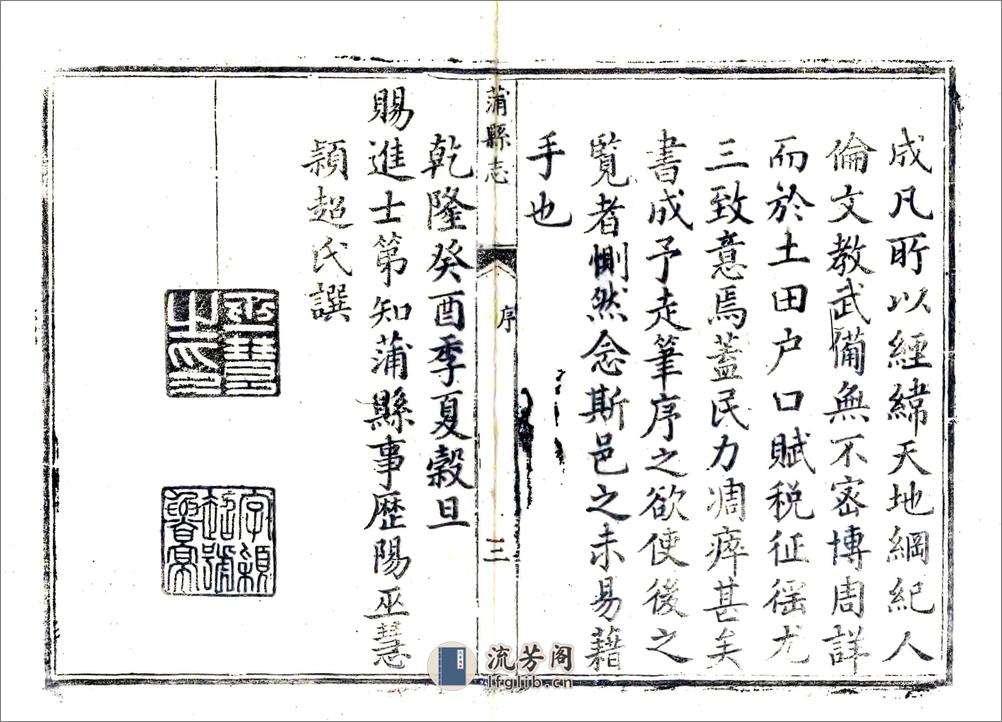 成凡所以經緯天地綱紀人
倫文教武備無不宻博周詳
而於土田户口賦税征徭尤
三致意焉蓋民力凋瘁甚矣
書成予走筆序之欲使後之
覧者惻然念斯邑之未易藉
手也
蒲縣志
序
三
乾隆癸酉季夏穀旦
賜進士第知蒲縣事歷陽巫慧
頴超氏譔
字頴
超號
流芳阁
lfglib.cn